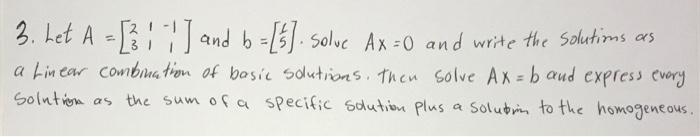 3. Let A = [2 1 -1; 3 1 1] and b = [1; 5]. Solve Ax=0 and write the solutions as
a Linear combination of basic solutions. then solve Ax = b and express every
Solution as the sum of a specific solution plus a solution to the homogeneous.